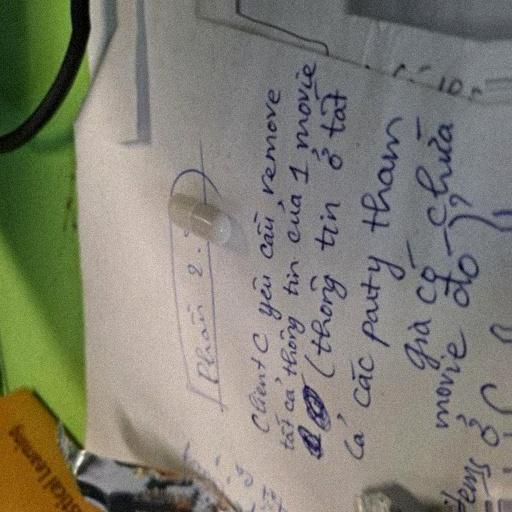 Phần 2.
Client C yêu cầu remove
tất cả thông tin của 1 movie
(thông tin ở tất
cả các party tham
gia có chứa
movie đó)
items ở
tical Learning